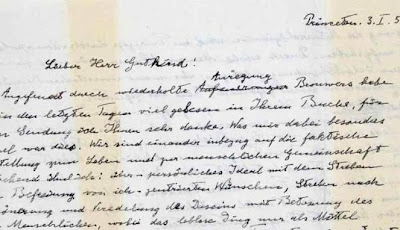 Princeton. 3. I. 5
Lieber Herr Gutkind!
Anregung
Angefeuert durch wiederholte Brouwers habe
in den letzten Tagen viel gelesen in Ihrem Buche, für
Sendung ich Ihnen sehr danke. Was mir dabei besonders
war dies. Wir sind einander inbezug auf die faktische
stellung zum Leben und zur menschlichen Gemeinschaft
ähnlich: über-persönliches Ideal mit dem Streben
Befreiung von ich-zentrierten Wünschen, Streben nach
önerung und Veredelung des Daseins mit Betonung des
Menschlichen, wobei das leblose Ding nur als Mittel